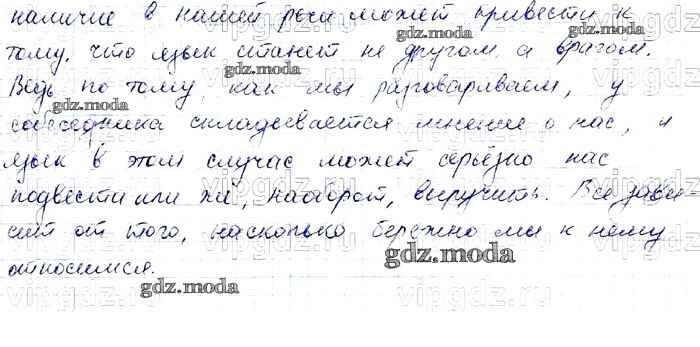 наличие в нашей речи может привести к
тому, что язык станет не другом, а врагом.
Ведь по тому, как мы разговариваем, у
собеседника складывается мнение о нас, и
язык в этом случае может серьёзно нас
подвести или же, наоборот, выручить. Все зави-
сит от того, насколько бережно мы к нему
относимся.
gdz.moda
gdz.moda
gdz.moda
gdz.moda
gdz.moda
gdz.moda
gdz.moda
gdz.moda
vipgdz.ru
vipgdz.ru